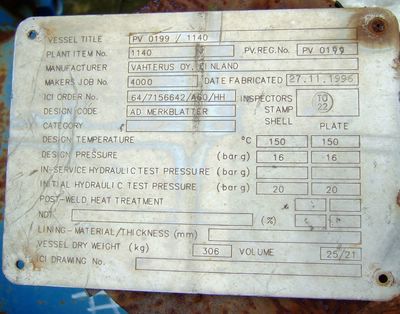 VESSEL TITLE PV 0199 / 1140
PLANT ITEM No. 1140 PV.REG.No. PV 0199
MANUFACTURER VAHTERUS OY. FINLAND
MAKERS JOB No. 4000 DATE FABRICATED 27.11.1996
ICI ORDER No. 64/7156642/A60/HH INSPECTORS STAMP TO 22
DESIGN CODE AD MERKBLATTER
CATEGORY SHELL PLATE
DESIGN TEMPERATURE °C 150 150
DESIGN PRESSURE (bar g) 16 16
IN-SERVICE HYDRAULIC TEST PRESSURE (bar g)
INITIAL HYDRAULIC TEST PRESSURE (bar g) 20 20
POST-WELD HEAT TREATMENT
NDT (%)
LINING-MATERIAL/THICKNESS (mm)
VESSEL DRY WEIGHT (kg) 306 VOLUME 25/21
ICI DRAWING No.